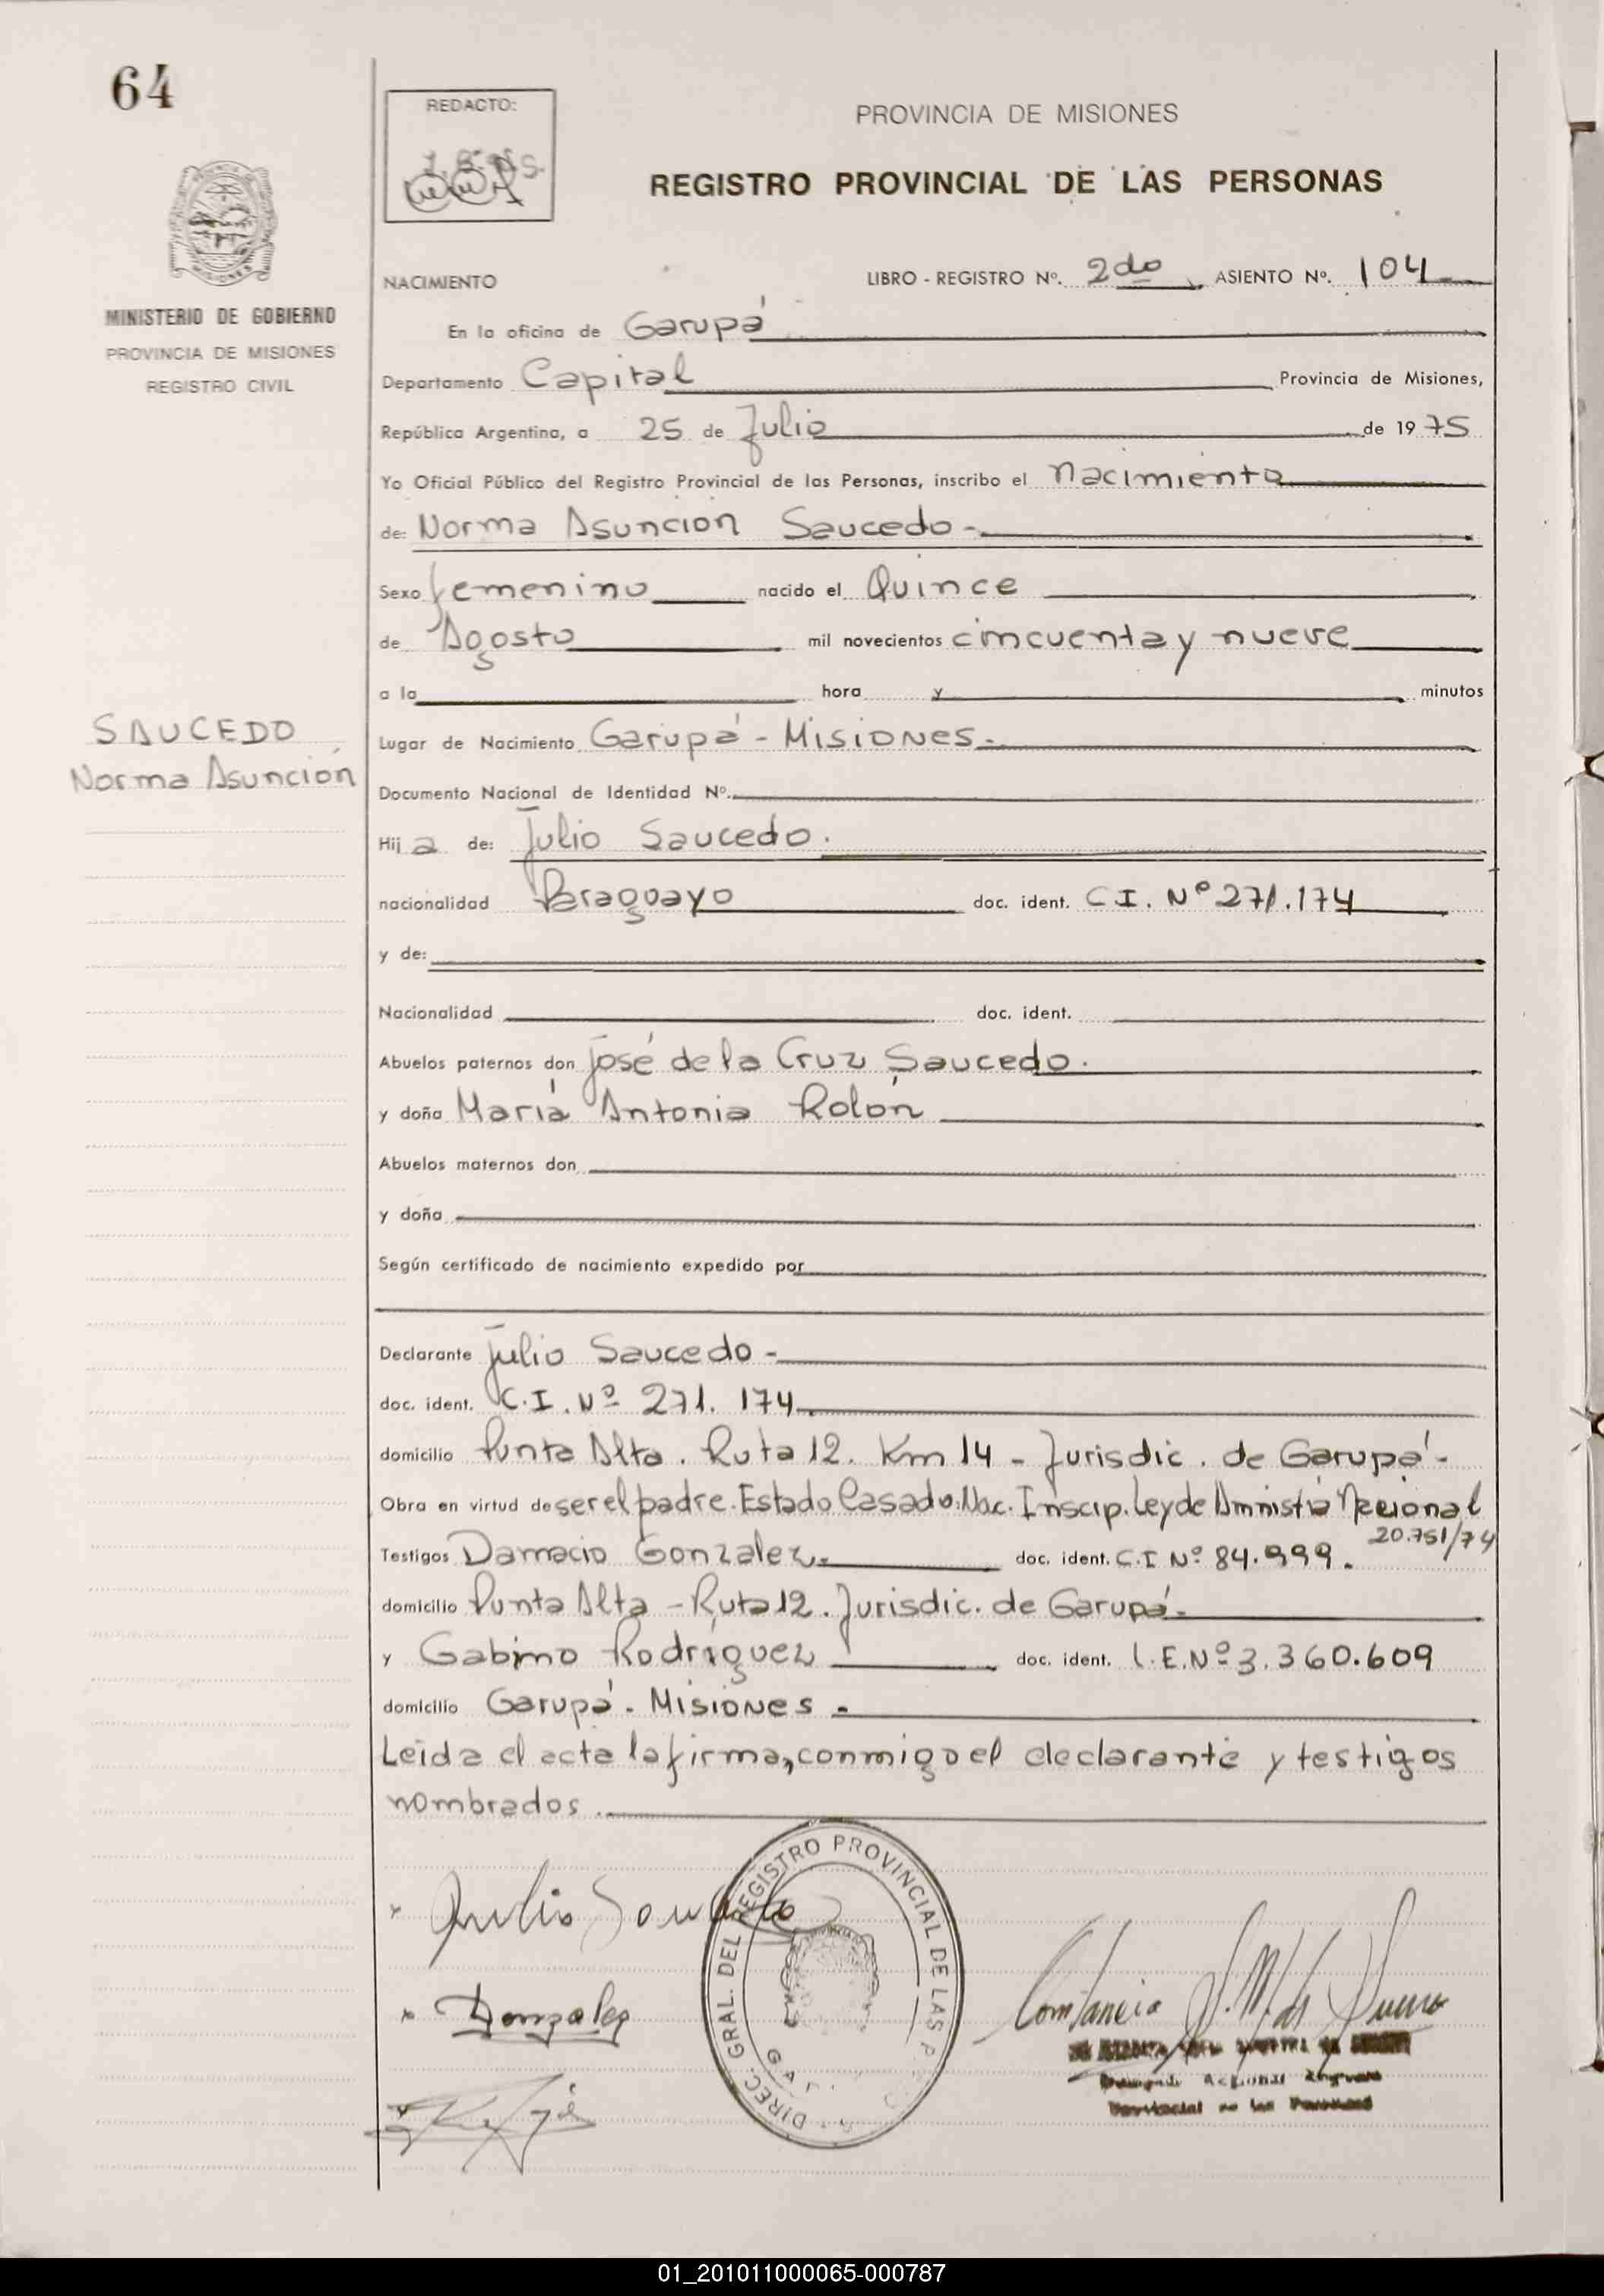 64
REDACTO:
PROVINCIA DE MISIONES
REGISTRO PROVINCIAL DE LAS PERSONAS
MINISTERIO DE GOBIERNO
PROVINCIA DE MISIONES
REGISTRO CIVIL
NACIMIENTO
LIBRO - REGISTRO Nº. 2do, ASIENTO Nº. 104
En la oficina de Garupá
Departamento Capital Provincia de Misiones,
República Argentina, a 25 de Julio de 1975
Yo Oficial Público del Registro Provincial de las Personas, inscribo el nacimiento
de: Norma Asuncion Saucedo -
Sexo femenino nacido el Quince
de Agosto mil novecientos cincuenta y nueve
a la hora y minutos
SAUCEDO
Norma Asunción
Lugar de Nacimiento Garupá - Misiones -
Documento Nacional de Identidad Nº.
Hija de: Julio Saucedo.
nacionalidad Paraguayo doc. ident. C I. Nº 271.174
y de:
Nacionalidad doc. ident.
Abuelos paternos don José de la Cruz Saucedo.
y doña María Antonia Rolón
Abuelos maternos don
y doña
Según certificado de nacimiento expedido por
Declarante Julio Saucedo -
doc. ident. C. I. Nº 271. 174
domicilio Punta Alta. Ruta 12. Km 14 - Jurisdic. de Garupá -
Obra en virtud de ser el padre. Estado Casado. Nac. Inscip. Ley de Amnistia Nacional
20.751/74
Testigos Damacio Gonzalez. doc. ident. C. I Nº 84.999.
domicilio Punta Alta - Ruta 12. Jurisdic. de Garupá -
y Gabino Rodríguez doc. ident. L. E. Nº 3.360.609
domicilio Garupá - Misiones -
Leida el acta la firma, conmigo el declarante y testigos
nombrados.
Julio Saucedo
Gonzalez
DIREC. GRAL. DEL REGISTRO PROVINCIAL DE LAS P
01_201011000065-000787